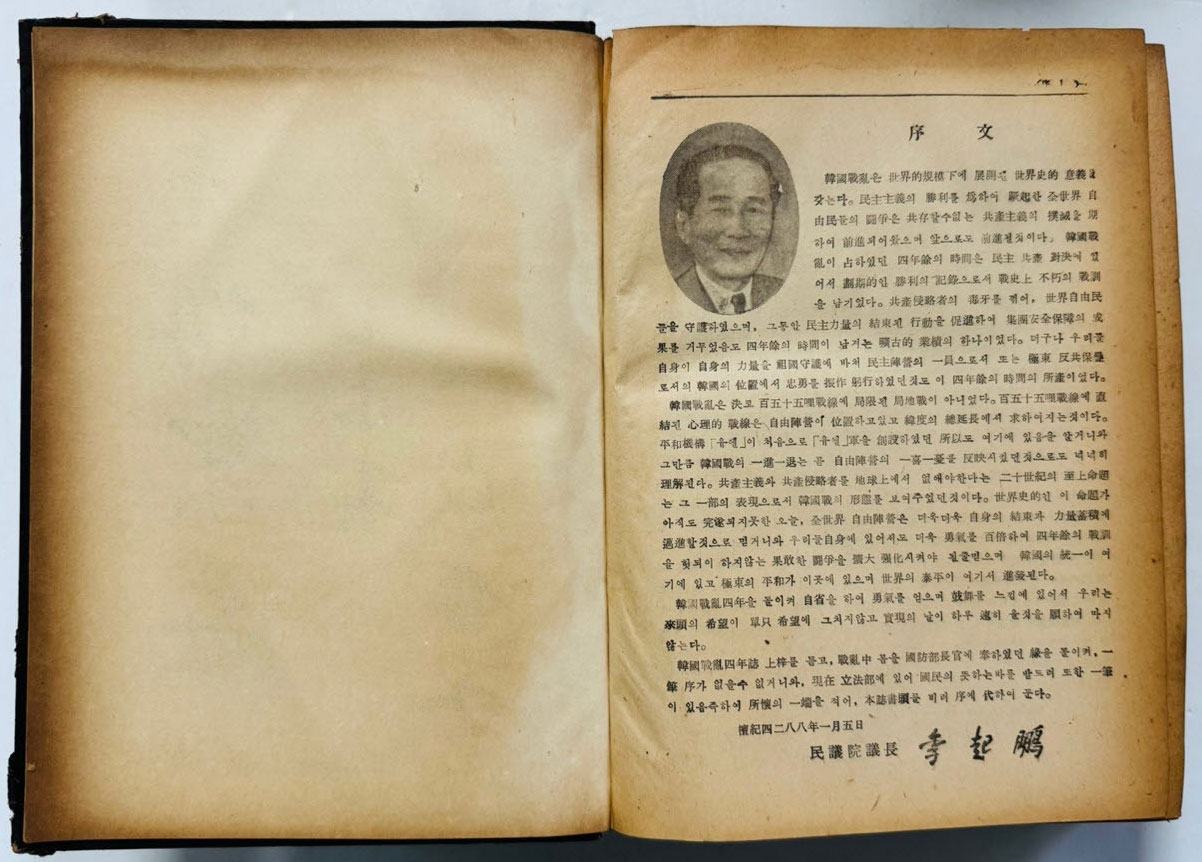 序 文
韓國戰亂은 世界的規模下에 展開된 世界史的 意義를
갖는다。民主主義의 勝利를 爲하여 蹶起한 全世界 自
由民들의 鬪爭은 共存할수없는 共產主義의 撲滅을 向
하여 前進되어왔으며 앞으로도 前進될것이다。韓國戰
亂이 占하였던 四年餘의 時間은 民主 共產 對決에 있
어서 劃期的인 勝利의 記錄으로서 戰史上 不朽의 戰訓
을 남기었다。共產侵略者의 毒牙를 꺾어, 世界自由民
들을 守護하였으며, 그동안 民主力量의 結束된 行動을 促進하여 集團安全保障의 成
果를 거두었음도 四年餘의 時間이 남겨는 曠古的 業績의 하나이었다。더구나 우리들
自身이 自身의 力量을 祖國守護에 바쳐 民主陣營의 一員으로서 또는 極東 反共保壘
로서의 韓國의 位置에서 忠勇를 振作 躬行하였던것도 이 四年餘의 時間의 所產이었다。
韓國戰亂은 決코 百五十五哩戰線에 局限된 局地戰이 아니었다。百五十五哩戰線에 直
結된 心理的 戰線은 自由陣營이 位置하고있고 緯度의 總延長에서 求하여지는것이다。
平和機構「유엔」이 처음으로「유엔」軍을 創設하였던 所以도 여기에 있음을 알거니와
그만큼 韓國戰의 一進一退는 곧 自由陣營의 一喜一憂를 反映시켰던것으로도 넉넉히
理解된다。共產主義와 共產侵略者를 地球上에서 없애야한다는 二十世紀의 至上命題
는 그 一部의 表現으로서 韓國戰의 形態를 보여주었던것이다。世界史的인 이 命題가
아직도 完遂되지못한 오늘, 全世界 自由陣營은 더욱더욱 自身의 結束과 力量蓄積에
邁進할것으로 믿거니와 우리들自身에 있어서도 더욱 勇氣를 百倍하여 四年餘의 戰訓
을 헛되이 하지않는 果敢한 鬪爭을 擴大 强化시켜야 될줄믿으며 韓國의 統一이 여
기에 있고 極東의 平和가 이곳에 있으며 世界의 泰平이 여기서 進發된다。
韓國戰亂四年을 돌이켜 自省을 하여 勇氣를 얻으며 鼓舞를 느낌에 있어서 우리는
來頭의 希望이 單只 希望에 그치지않고 實現의 날이 하루 速히 올것을 願하여 마지
않는다。
韓國戰亂四年誌 上梓를 듣고, 戰亂中 몸을 國防部長官에 奉하였던 緣을 돌이켜, 一
筆 序가 없을수 없거니와, 現在 立法部에 있어 國民의 뜻하는바를 받드러 또한 一筆
이 있음즉하여 所懷의 一端을 적어, 本誌書頭를 비러 序에 代하여 둔다。
檀紀四二八八年一月五日
民議院議長 李起鵬